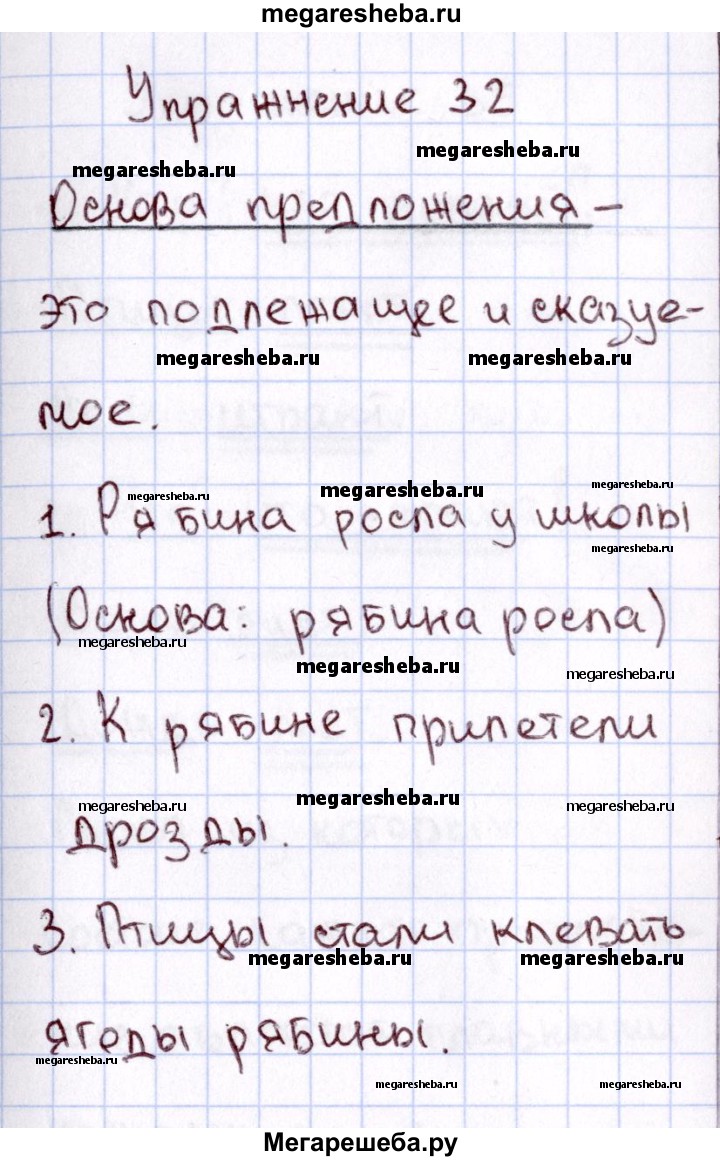 megaresheba.ru
Упражнение 32
megaresheba.ru
megaresheba.ru
Основа предложения –
это подлежащее и сказуе-
megaresheba.ru megaresheba.ru
мое.
megaresheba.ru megaresheba.ru megaresheba.ru
1. Рябина росла у школы
megaresheba.ru
(Основа: рябина росла)
megaresheba.ru megaresheba.ru megaresheba.ru
2. К рябине прилетели
megaresheba.ru megaresheba.ru megaresheba.ru
дрозды.
3. Птицы стали клевать
megaresheba.ru megaresheba.ru
ягоды рябины.
megaresheba.ru megaresheba.ru megaresheba.ru
Мегарешеба.ру